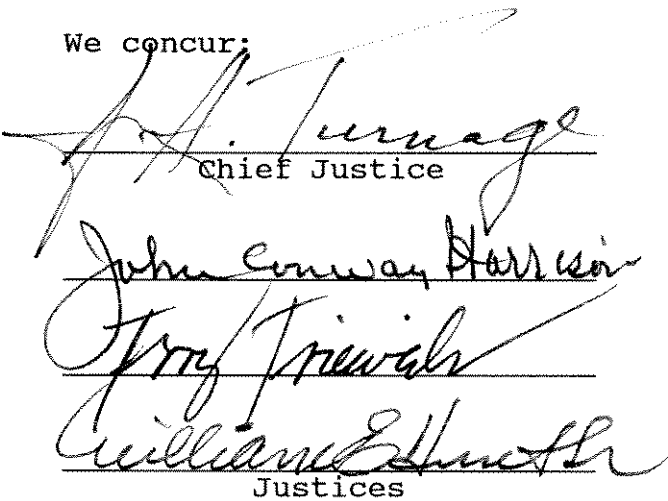 We concur:
J. A. Turnage
Chief Justice
John Conway Harrison
Terry Trieweiler
William E. Hunt Sr.
Justices